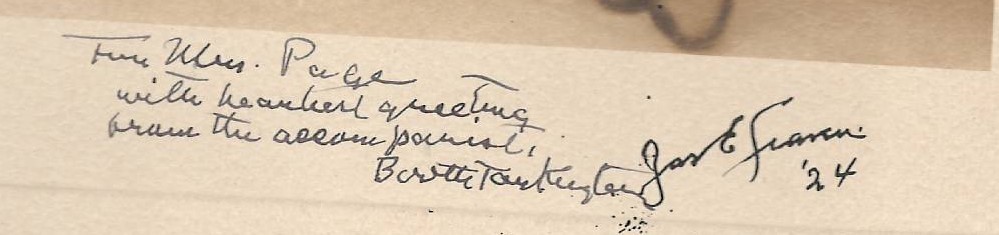 For Mrs. Page
with heartiest greeting
from the accompanist,
Booth Tarkington
Jas E Fraser.
'24